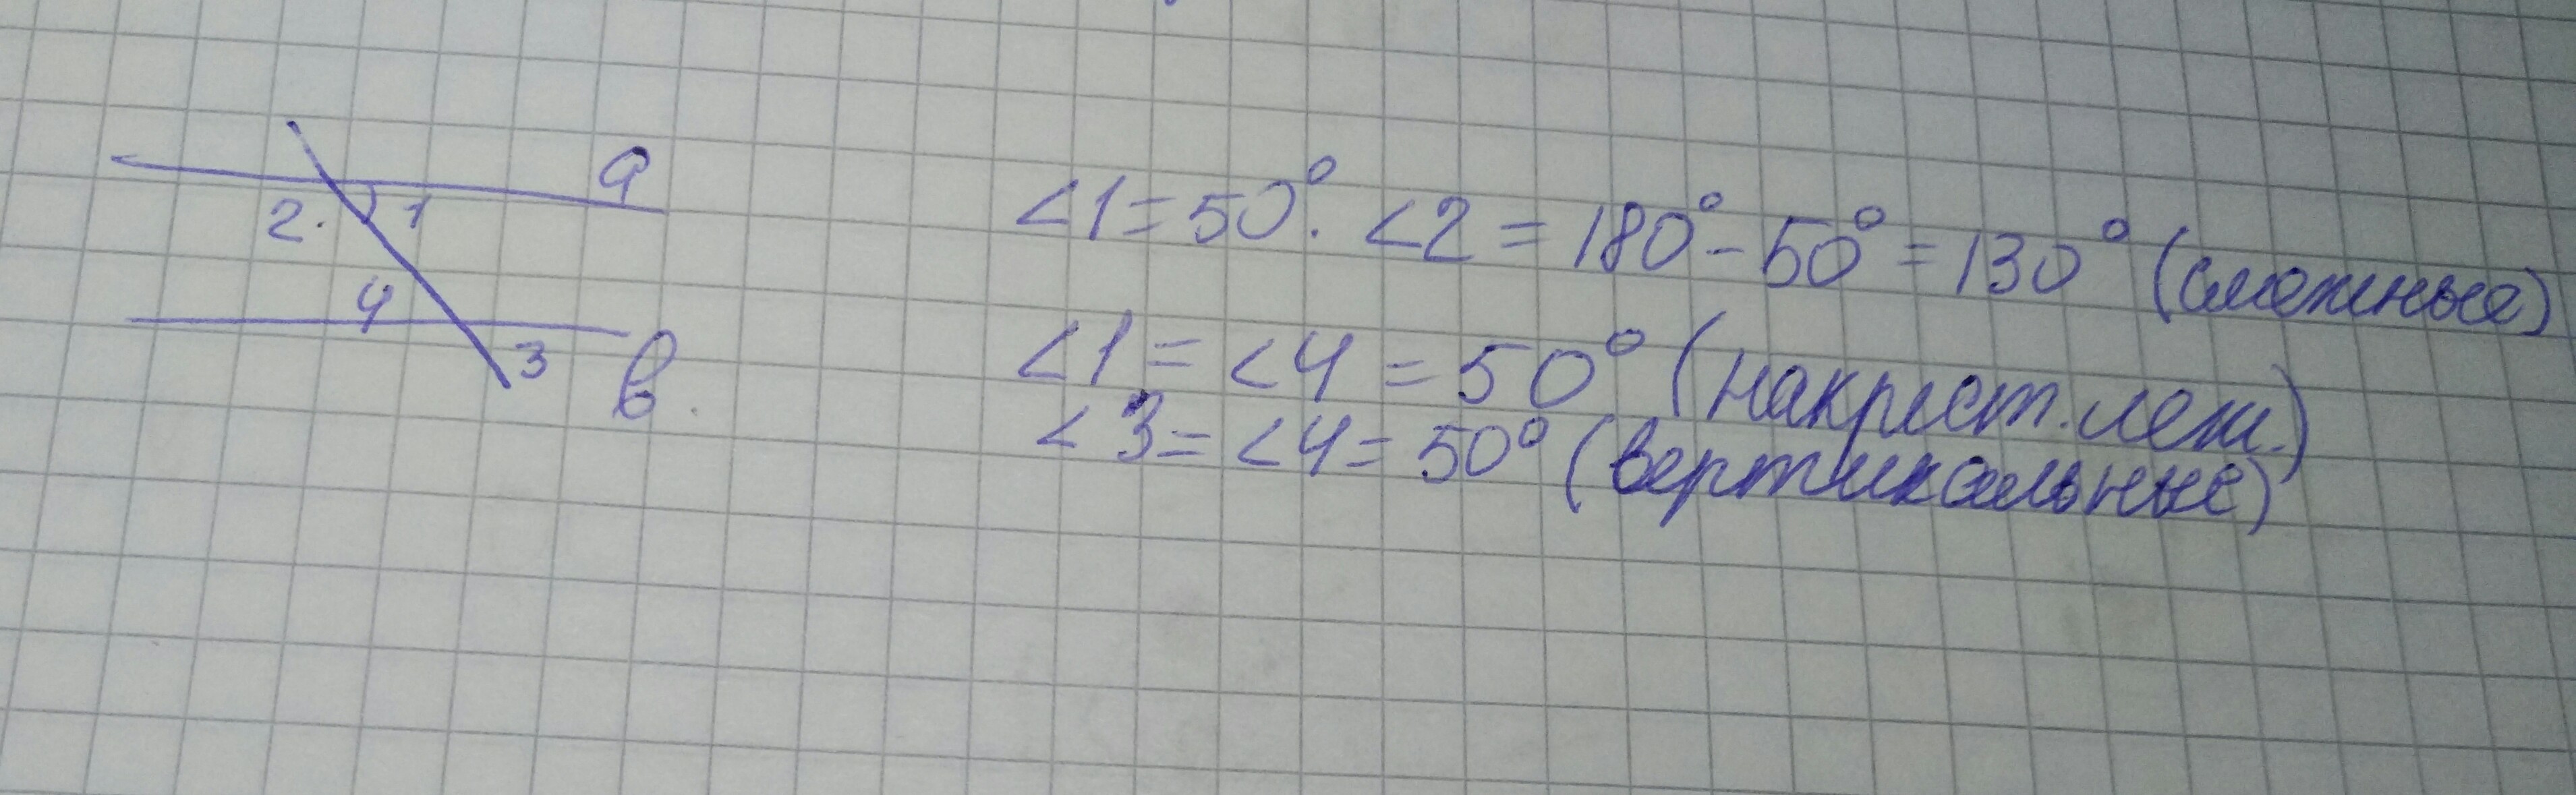 a
2. 1
4
3
в.
∠1 = 50°. ∠2 = 180° - 50° = 130° (смежные)
∠1 = ∠4 = 50° (накрест. леж.)
∠3 = ∠4 = 50° (вертикальные)